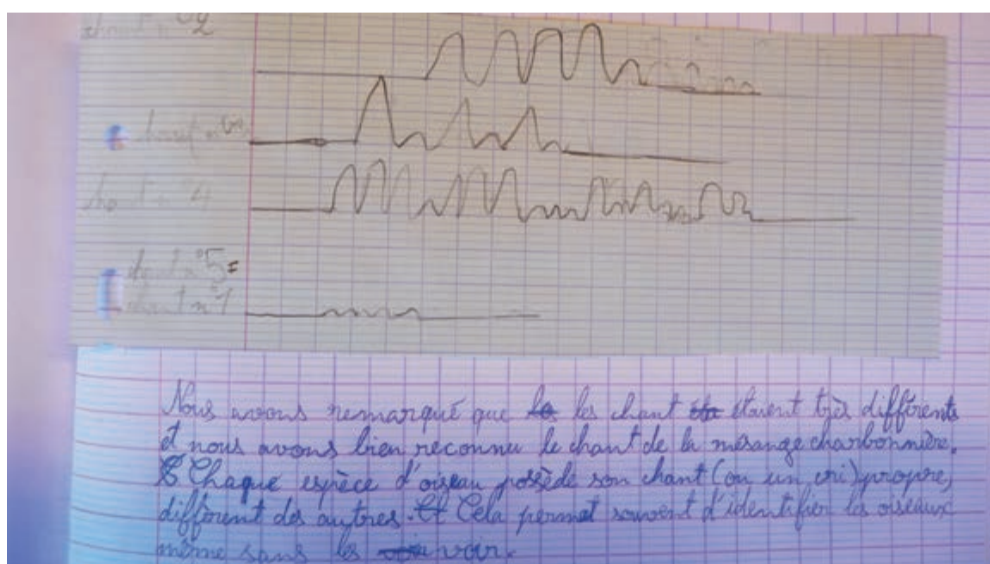 chant n°2
chant n°
chant n°4
chant n°5 =
chant n°1
Nous avons remarqué que les chant étaient très différents
et nous avons bien reconnu le chant de la mésange charbonnière.
Chaque espèce d'oiseau possède son chant (ou un cri) propre,
différent des autres. Cela permet souvent d'identifier les oiseaux
même sans les voir.